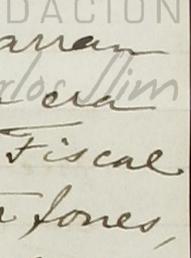 DACION
arran
Carlos Slim
era
Fiscal
fones,